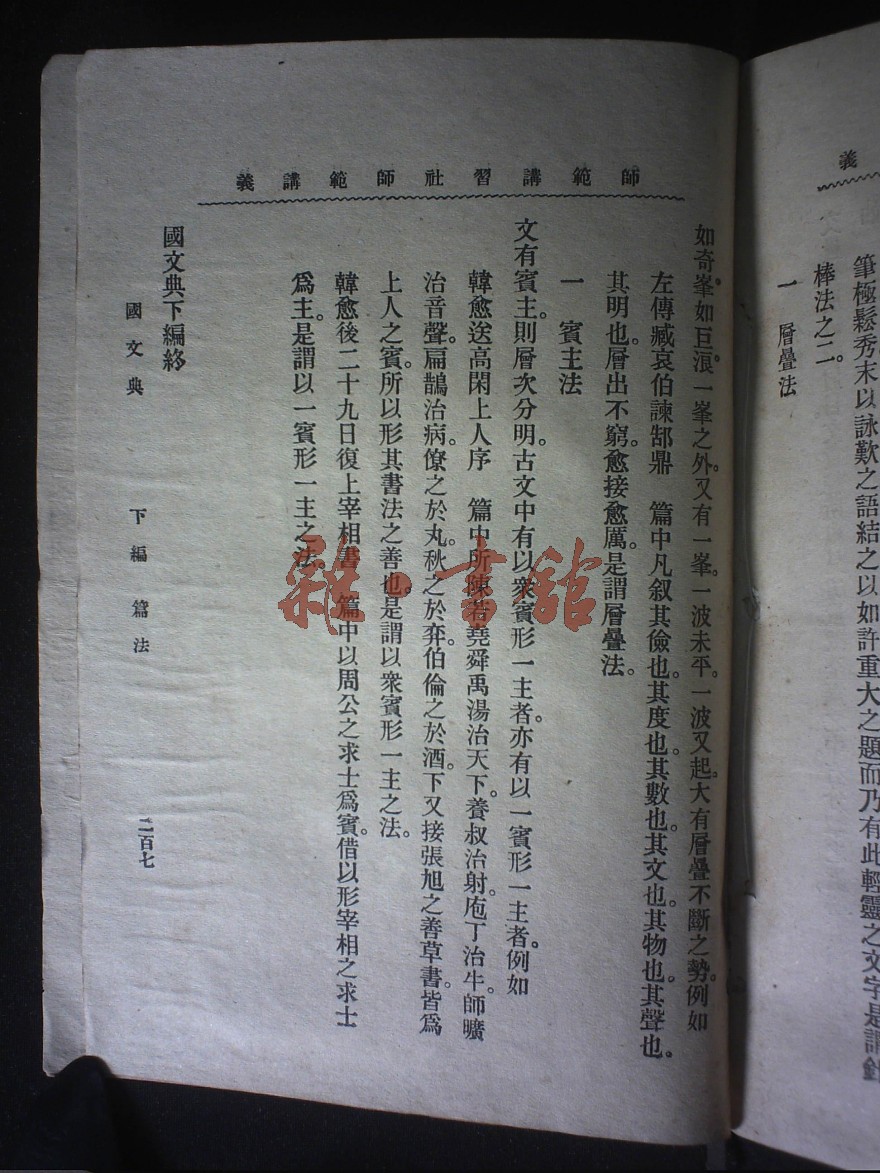 義
筆極鬆秀末以詠歎之語結之以如許重大之題而乃有此輕靈之文字是謂針
棒法之二。
一　層疊法
師範講習社師範講義
如奇峯。如巨浪。一峯之外。又有一峯。一波未平。一波又起。大有層疊不斷之勢。例如
左傳臧哀伯諫郜鼎　篇中凡敘其儉也。其度也。其數也。其文也。其物也。其聲也。
其明也。層出不窮。愈接愈厲。是謂層疊法。
一　賓主法
文有賓主。則層次分明。古文中有以衆賓形一主者。亦有以一賓形一主者。例如
韓愈送高閑上人序　篇中所陳若堯舜禹湯治天下。養叔治射。庖丁治牛。師曠
治音聲。扁鵲治病。僚之於丸。秋之於弈。伯倫之於酒。下又接張旭之善草書。皆爲
上人之賓。所以形其書法之善也。是謂以衆賓形一主之法。
韓愈後二十九日復上宰相書　篇中以周公之求士爲賓。借以形宰相之求士
爲主。是謂以一賓形一主之法。
國文典下編終
國文典　下編　篇法　二百七
雜·書館